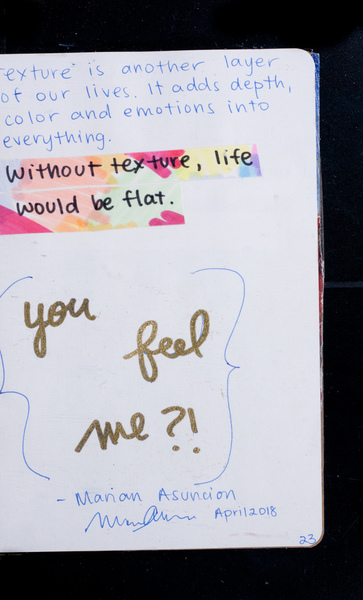 exture" is another layer
of our lives. It adds depth,
color and emotions into
everything.
Without texture, life
would be flat.
you
feel
me?!
- Marian Asuncion
April 2018
23